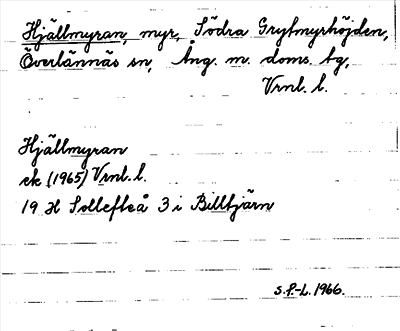 Hjällmyran, myr, Södra Grytmyrhöjden,
Överlännäs sn, Ång. m. doms. tg,
Vrnl. l.
Hjällmyran
ek (1965) Vrnl. l.
19 H Sollefteå 3 i Billtjärn
S.P.-L. 1966.